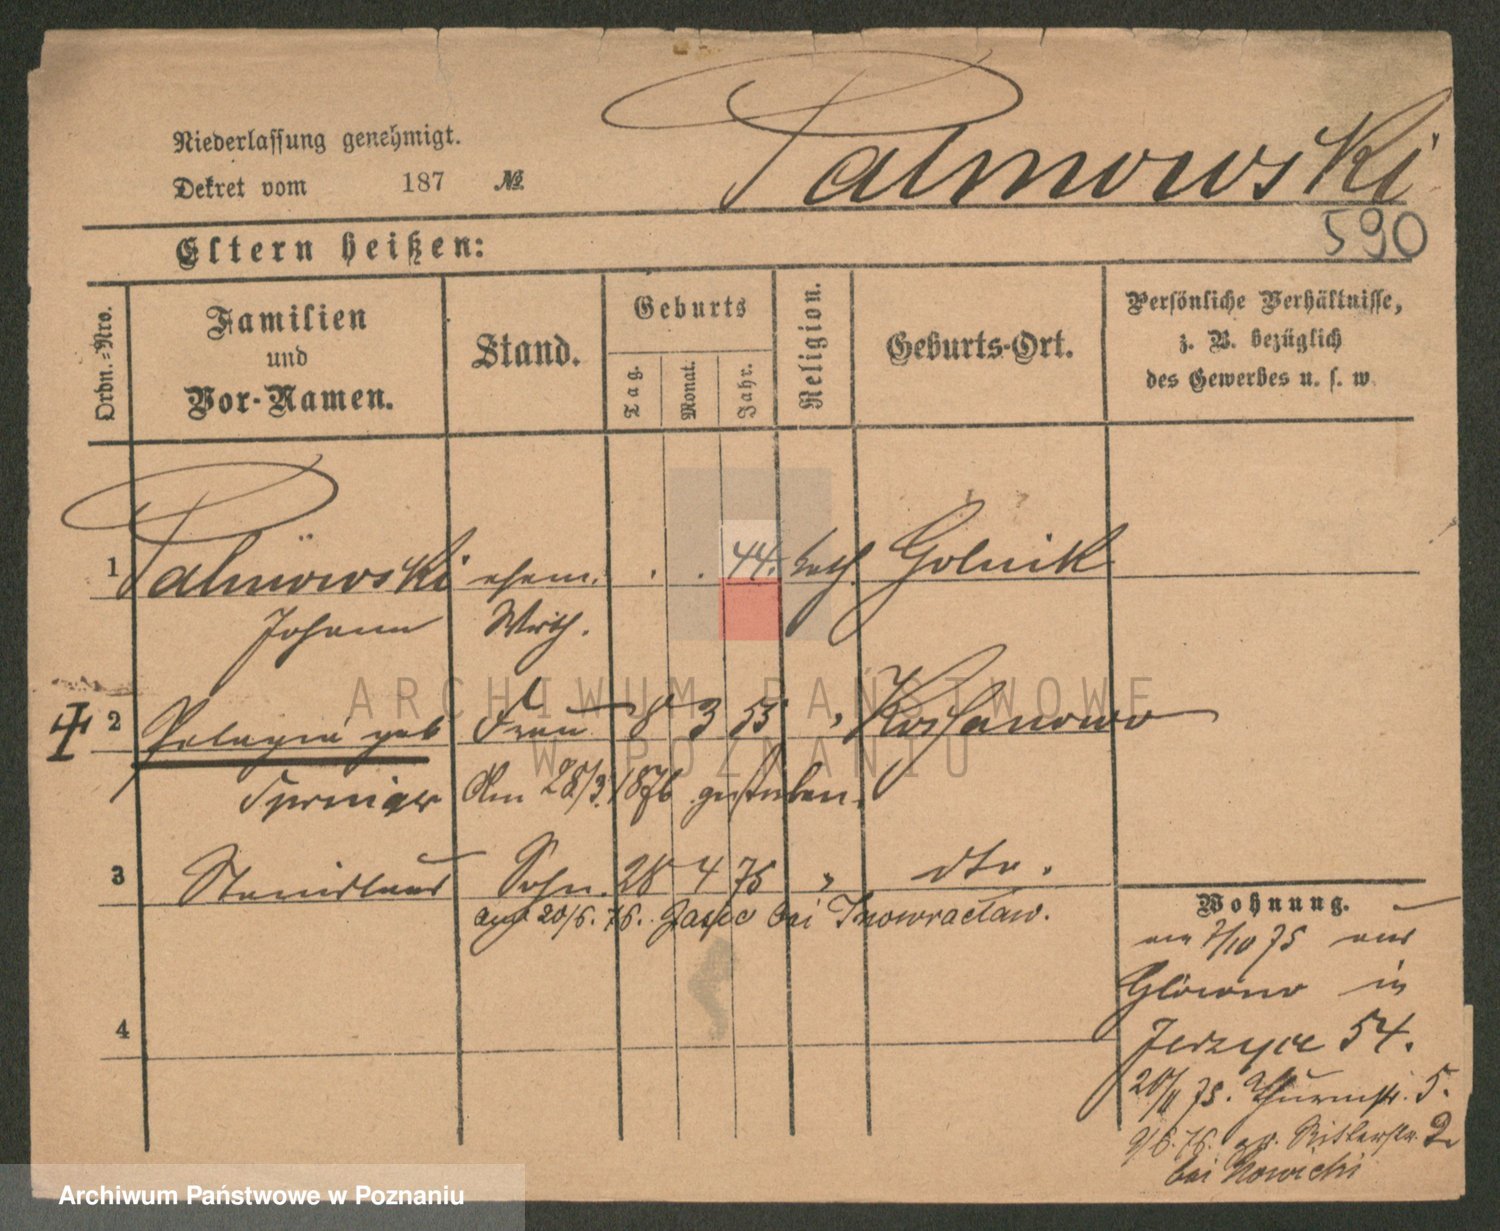 Niederlassung genehmigt.
Dekret vom 187 №
Palmowski
590
Eltern heißen:
Ordn.=Nro.
Familien
und
Vor-Namen.
Stand.
Geburts
Tag.
Monat.
Jahr.
Religion.
Geburts-Ort.
Persönliche Verhältnisse,
z. B. bezüglich
des Gewerbes u. s. w.
1 Palmowski ehem. . . 44. kath. Golnik
Johann Wirth.
2 Pelagia geb Frau 8 3 53 "
Am 28/3. 1876 gestorben.
3 Stanislaus Sohn. 28 4 75 " dto.
20/6. 76. bei Inowraclaw.
4
Wohnung.
am 7/10 75 aus
Glowno in
Jerzyce 54.
20/11 75. Thurmstr. 5.
9/6. 76. gr. Ritterstr. 2
bei Nowicki
ARCHIWUM PAŃSTWOWE
W POZNANIU
Archiwum Państwowe w Poznaniu